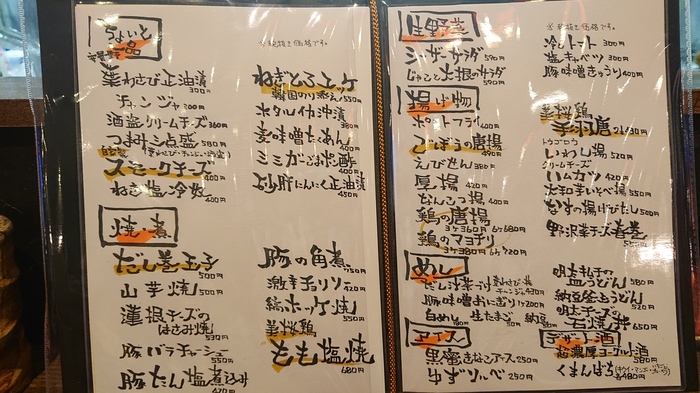 ちょいと一品
※税抜き価格です。
葉わさび正油漬 300円
チャンジャ 300円
酒盗クリームチーズ 360円
つまみ三点盛 580円
自家製
スモークチーズ 400円
ねぎ塩冷奴 400円
ねぎとろユッケ
韓国のり添え 550円
ホタルイカ沖漬 380円
麦味噌たくあん 400円
ミミガーごまポン酢 400円
砂肝にんにく正油漬 450円
焼・煮
だし巻玉子 500円
山芋焼 500円
蓮根チーズの
はさみ焼 530円
豚バラチャーシュー 550円
豚たん塩煮込み
豚の角煮 750円
激辛チョリソ 420円
縞ホッケ焼 550円
華桜鶏
もも塩焼 680円
生野菜
※税抜き価格です。
シーザーサラダ 590円
じゃこと大根のサラダ 590円
冷しトマト 300円
塩キャベツ 300円
豚味噌きゅうり 400円
揚げ物
ポテトフライ 400円
ごぼうの唐揚 490円
えびせん 380円
厚揚 420円
なんこつ揚 400円
鶏の唐揚
3ケ360円 6ケ680円
鶏のマヨチリ
3ケ380円 6ケ720円
華桜鶏
手羽唐 2本430円
いわし揚 520円
クリームチーズ
ハムカツ 420円
大和芋いそべ揚 550円
なすの揚げびたし 500円
野沢菜チーズ春巻 550円
めし
だし汁茶づけ
豚味噌おにぎり 1ケ200円
白めし 生たまご 50円 納豆
明太子の
塩うどん 580円
納豆釜玉うどん 520円
明太チーズの
石焼丼 650円
アイス
黒蜜きなこアイス 250円
ゆずソルベ 250円
デザート酒
超濃厚ヨーグルト酒 580円
くまんばち 各480円